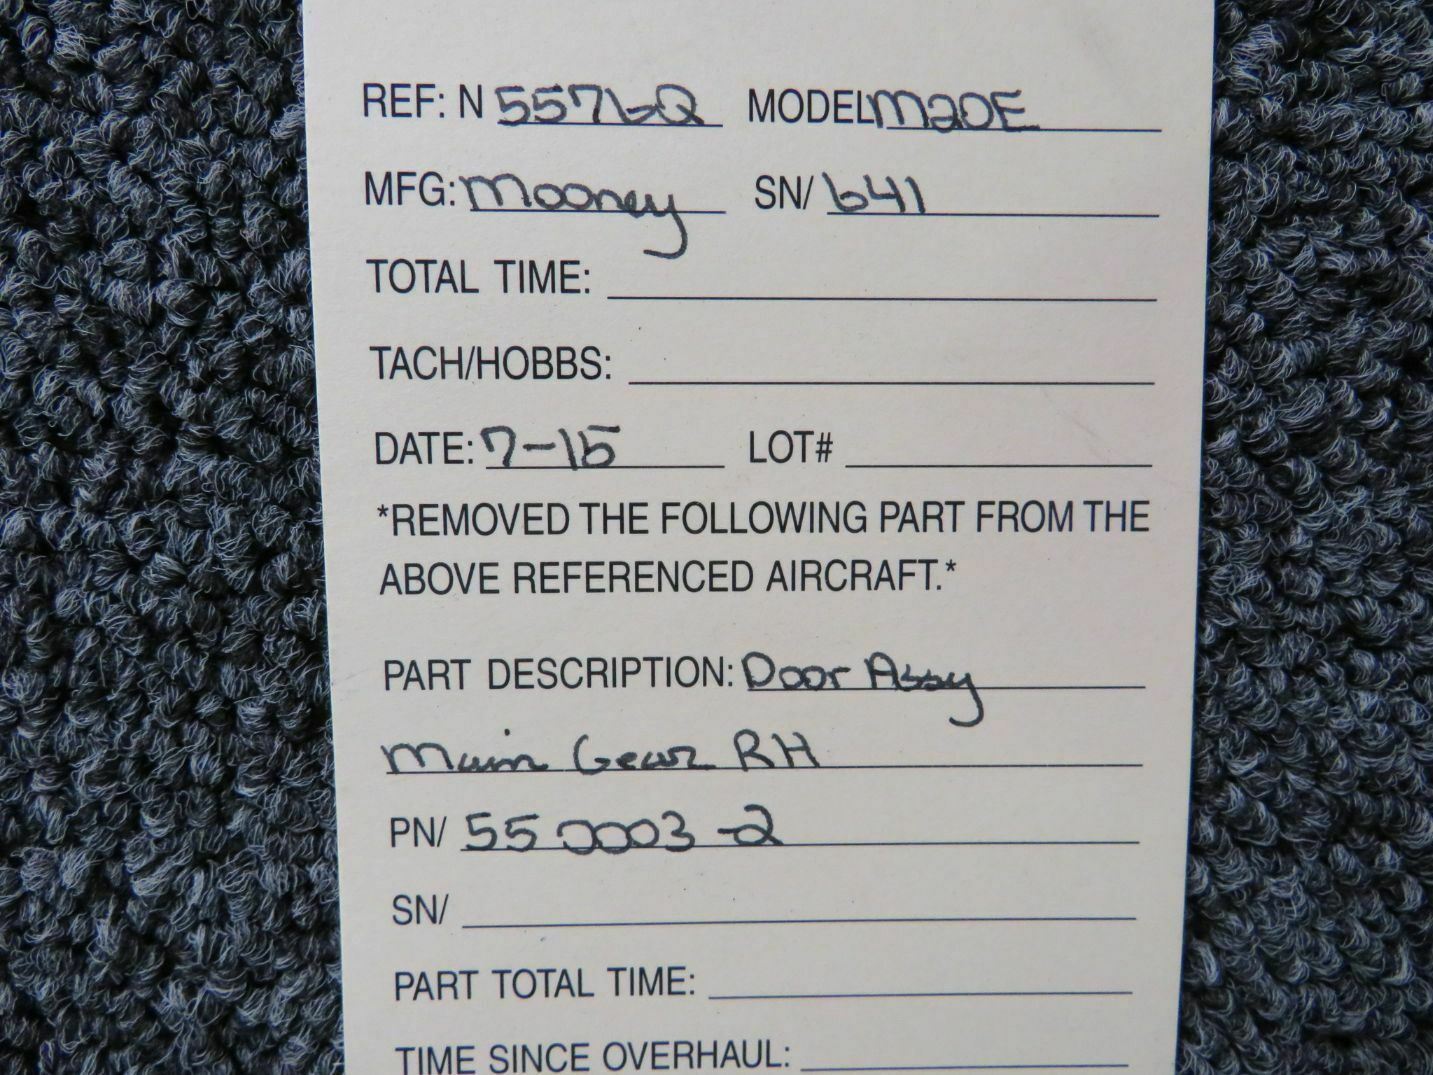 REF: N 5576Q MODEL M20E
MFG: Mooney SN/ 641
TOTAL TIME:
TACH/HOBBS:
DATE: 7-15 LOT#
*REMOVED THE FOLLOWING PART FROM THE
ABOVE REFERENCED AIRCRAFT.*
PART DESCRIPTION: Door Assy
Main Gear RH
PN/ 550003-2
SN/
PART TOTAL TIME:
TIME SINCE OVERHAUL: